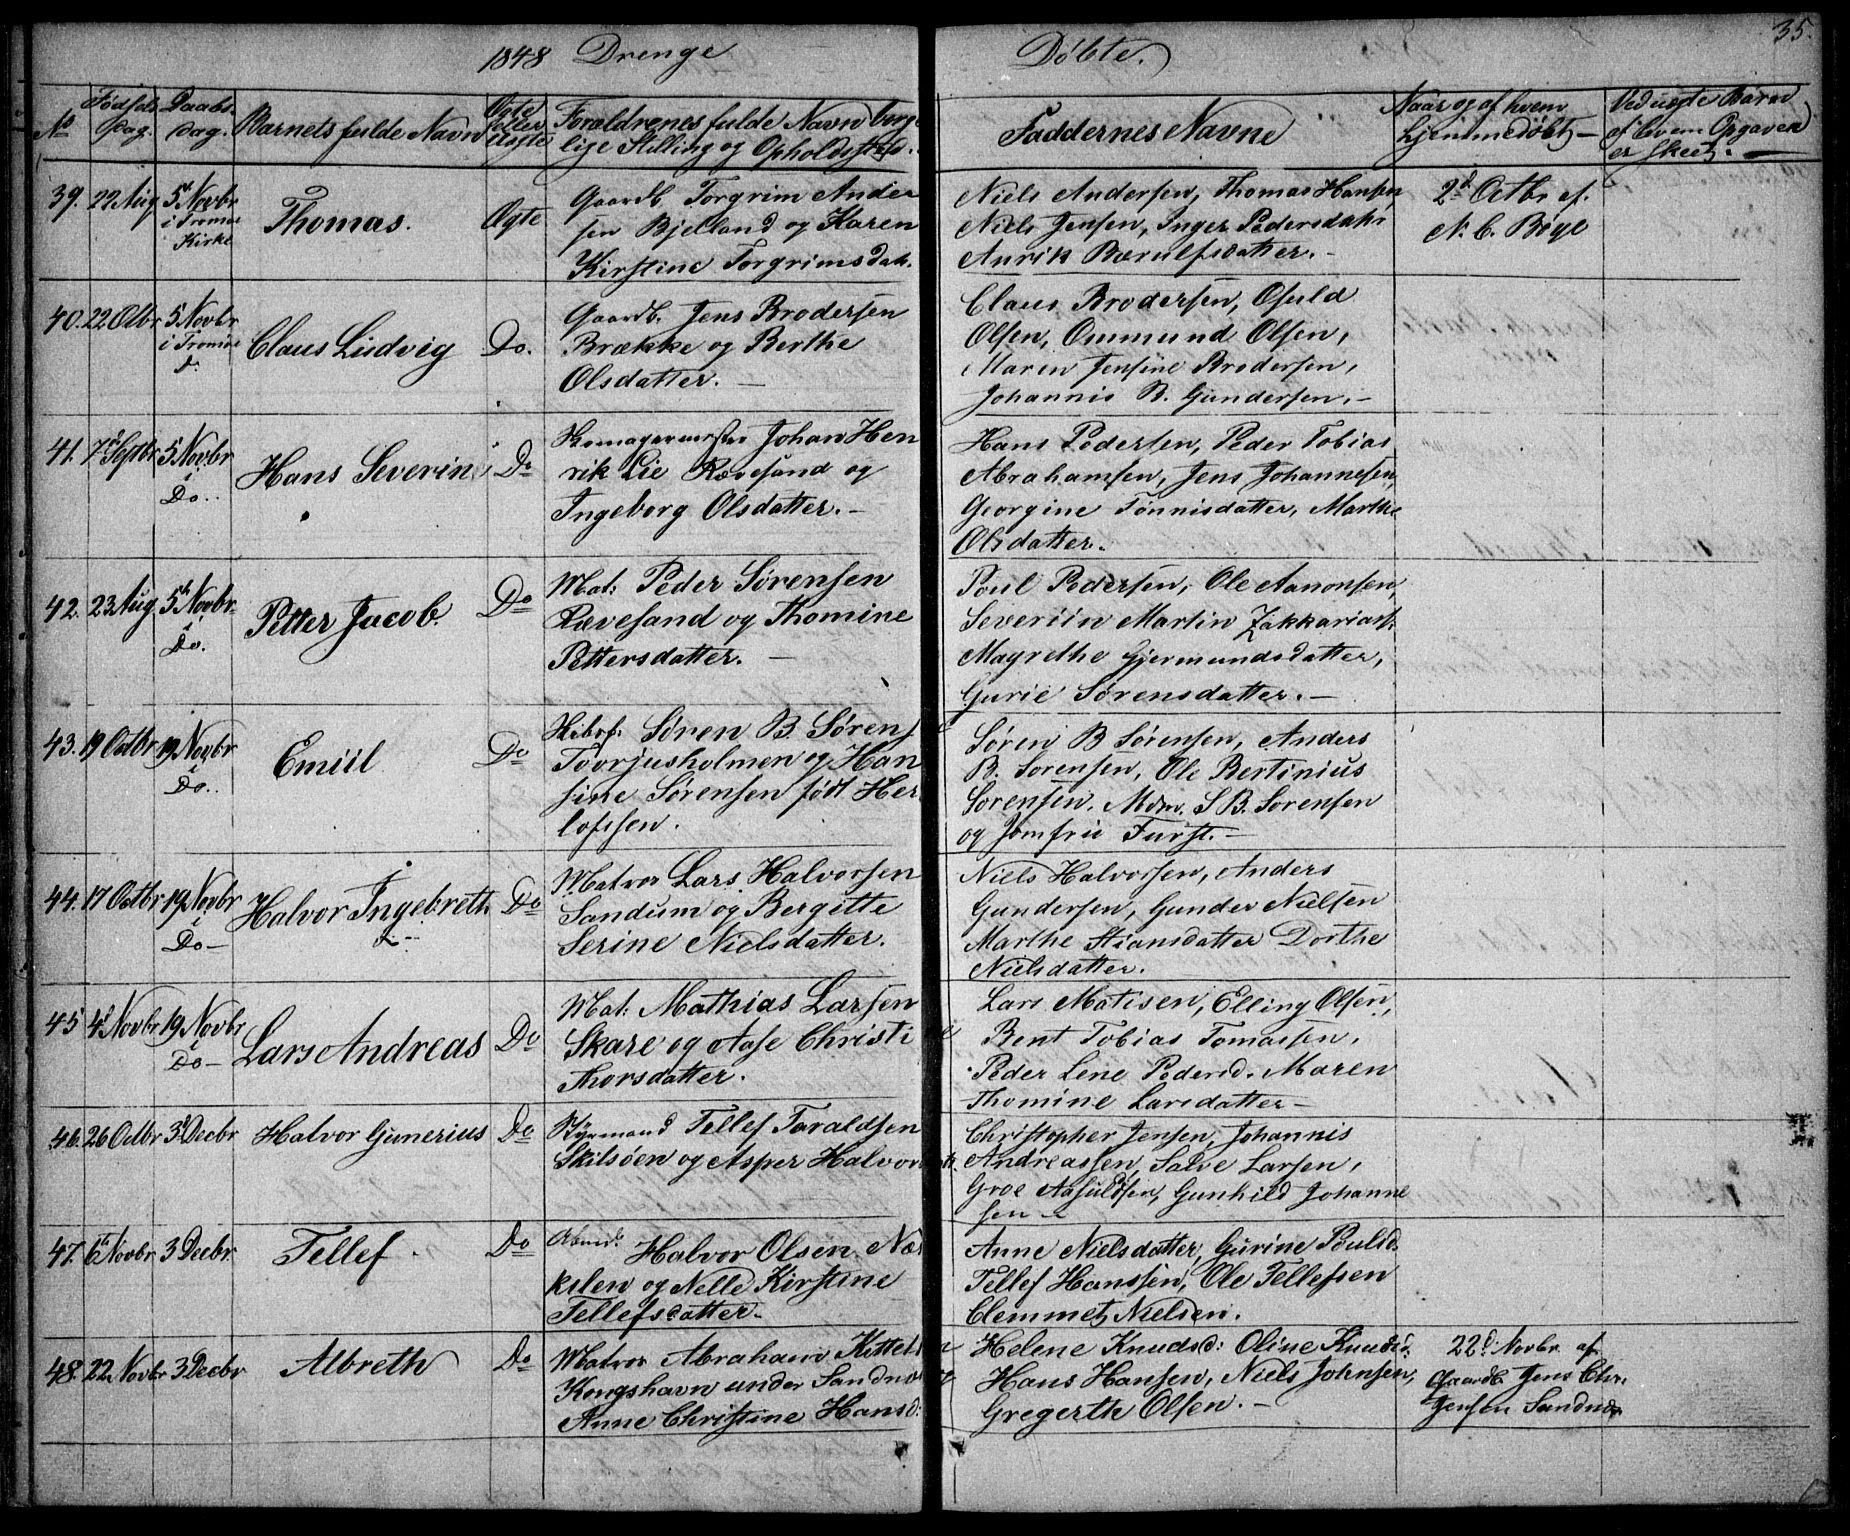 35.
1848 Drenge Døbte.
No
Fødsels Dag.
Daabs Dag.
Barnets fulde Navn
Ægte eller Uægte
Forældrenes fulde Navn borger
lige Stilling og Opholdssted.
Faddernes Navne
Naar og af hvem
hjemmedøbt
Ved uægte Børn
af hvem Opgaven
er skeet.
39. 29 Aug 5t Novbr
i Tromøe
Kirke
Thomas.
Ægte
Gaardb. Torgrim Ander
sen Bjelland og Karen
Kirstine Torgrimsdatt.
Niels Andersen, Thomas Hansen
Niels Jensen, Inger Pedersdatr
Anrik Bærulfsdatter.
2d Octbr af.
N. C. Bøge
40. 22 Otbr 5 Novbr
i Tromøe
d.
Claus Ludvig
Do.
Gaardb. Jens Brodersen
Brække og Berthe
Olsdatter. —
Claus Brodersen, Osuld
Olsen, Ommund Olsen,
Maren Jensine Brodersen,
Johannis B. Gundersen. —
41. 7d Septbr 5 Novbr
i
Do..
Hans Severin
Do
Skomagermester Johan Hen
rik Lie Rævesand og
Ingeborg Olsdatter. —
Hans Pedersen, Peder Tobias
Abrahamsen, Jens Johannesen,
Georgine Tønnisdatter, Marthe
Olsdatter.
42. 23 Aug 5te Novbr
i
Do.
Petter Jacob.
Do
Mat: Peder Sørensen
Rævesand og Thomine
Pettersdatter. —
Poul Pedersen, Ole Aanonsen,
Severiin Martin Zakkarias.
Magrethe Gjermundsdatter,
Gurie Sørensdatter. —
43. 19 Octbr 19 Novbr
i
Do..
Emiil
Do
Skibsf. Søren B. Sørens
Toorjusholmen og Han
sine Sørensen født Her
lofssen.
Søren B Sørensen, Anders
B. Sørensen, Ole Bertinius
Sørensen, Mdm. S B. Sørensen
og Jomfru Furst. —
44. 17 Octbr 19 Novbr
i
Do —
Halvor Ingebreth
Do
Matros Lars Halvorsen
Sandum og Bergitte
Serine Nielsdatter.
Niels Halvorsen, Anders
Gundersen, Gunder Nielsen
Marthe Stiansdatter Dorthe
Nielsdatter.
45 4d Novbr 19 Novbr
i
Do —
Lars Andreas
Do
Mat: Mathias Larsen
Skare og Aase Christi
Thorsdatter.
Lars Matisen, Elling Olsen,
Bent Tobias Tomassen,
Peder Lene Pedersd. Maren
Thomine Larsdatter —
46. 26 Octbr 3d Decbr
Halvor Gunerius
Do
Styrmand Tellef Taraldsen
Skilsøen og Asper Halvors
Christopher Jensen, Johannis
Andreassen, Salve Larsen,
Groe Aasuldsen, Gunhild Johanne
sen —
47. 6te Novbr 3 Decbr.
Tellef
Do
Halvor Olsen Næs
kilen og Nelle Kirstine
Tellefsdatter.
Anne Nielsdatter, Gurine Poulsd.
Tellef Hanssen, Ole Tellefsen
Clemmet Nielsen.
48. 22 Novbr 3 Decbr
Albreth
Do
Matros Abraham Kittel
Kongshavn under Sandnæs
Anne Christine Hansd:
Helene Knudsd: Oline Knudsd.
Hans Hansen, Niels Johnsen,
Gregerth Olsen. —
22d Novbr af
Gaardb. Jens Chr.
Jensen Sandnæs